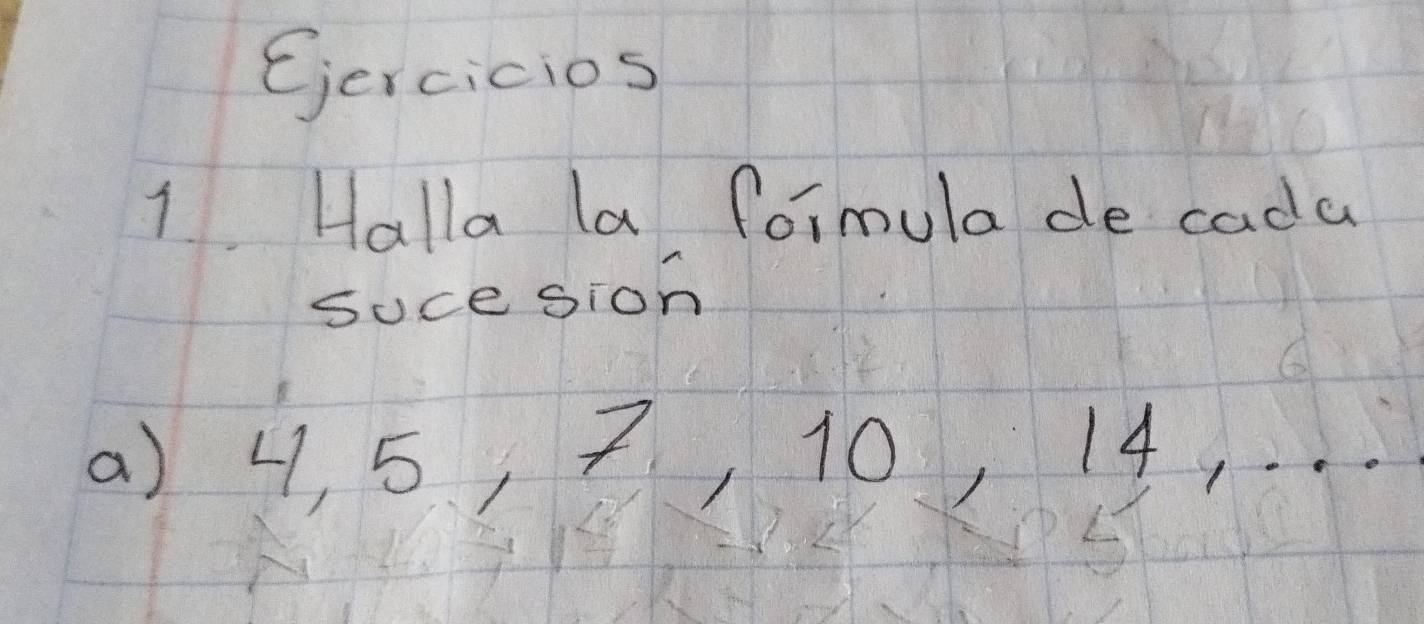 Ejercicios
1. Halla la fórmula de cada
sucesión
a) 4, 5, 7, 10, 14, ....